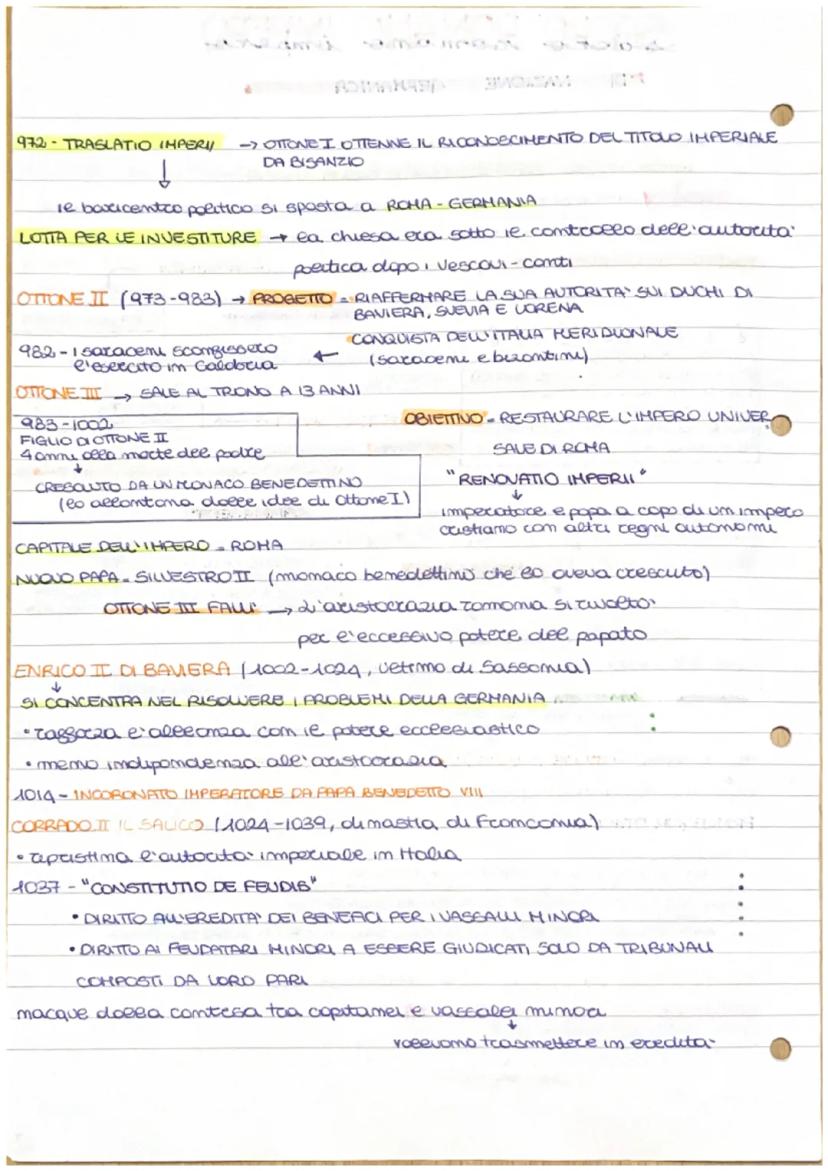 972 - TRASLATIO IMPERII → OTTONE I OTTENNE IL RICONOSCIMENTO DEL TITOLO IMPERIALE
DA BISANZIO
↓
il baricentro politico si sposta a ROMA - GERMANIA
LOTTA PER LE INVESTITURE → la chiesa era sotto il controllo dell'autorità
politica dopo i vescovi-conti
OTTONE II (973-983) → PROGETTO = RIAFFERMARE LA SUA AUTORITÀ SUI DUCHI DI
BAVIERA, SVEVIA E LORENA
CONQUISTA DELL'ITALIA MERIDIONALE
(saraceni e bizantini)
982 - i saraceni sconfissero ←
l'esercito in Calabria
OTTONE III → SALE AL TRONO A 13 ANNI
983-1002
FIGLIO DI OTTONE II
4 anni alla morte del padre
↓
CRESCIUTO DA UN MONACO BENEDETTINO
(lo allontana dalle idee di Ottone I)
OBIETTIVO = RESTAURARE L'IMPERO UNIVER
SALE DI ROMA
"RENOVATIO IMPERII"
↓
imperatore e papa a capo di un impero
cristiano con altri regni autonomi
CAPITALE DELL'IMPERO = ROMA
NUOVO PAPA = SILVESTRO II (monaco benedettino che lo aveva cresciuto)
OTTONE III FALLÌ → L'aristocrazia romana si rivoltò
per l'eccessivo potere del papato
ENRICO II DI BAVIERA (1002-1024, ultimo di Sassonia)
↓
SI CONCENTRA NEL RISOLVERE I PROBLEMI DELLA GERMANIA
• rafforza l'alleanza con il potere ecclesiastico
• meno indipendenza all'aristocrazia
1014 - INCORONATO IMPERATORE DA PAPA BENEDETTO VIII
CORRADO II IL SALICO (1024-1039, dinastia di Franconia)
• ripristina l'autorità imperiale in Italia
1037 - "CONSTITUTIO DE FEUDIS"
• DIRITTO ALL'EREDITÀ DEI BENEFICI PER I VASSALLI MINORI
• DIRITTO AI FEUDATARI MINORI A ESSERE GIUDICATI SOLO DA TRIBUNALI
COMPOSTI DA LORO PARI
nacque dalla contesa tra capitanei e vassalli minori
↓
volevano trasmettere in eredità